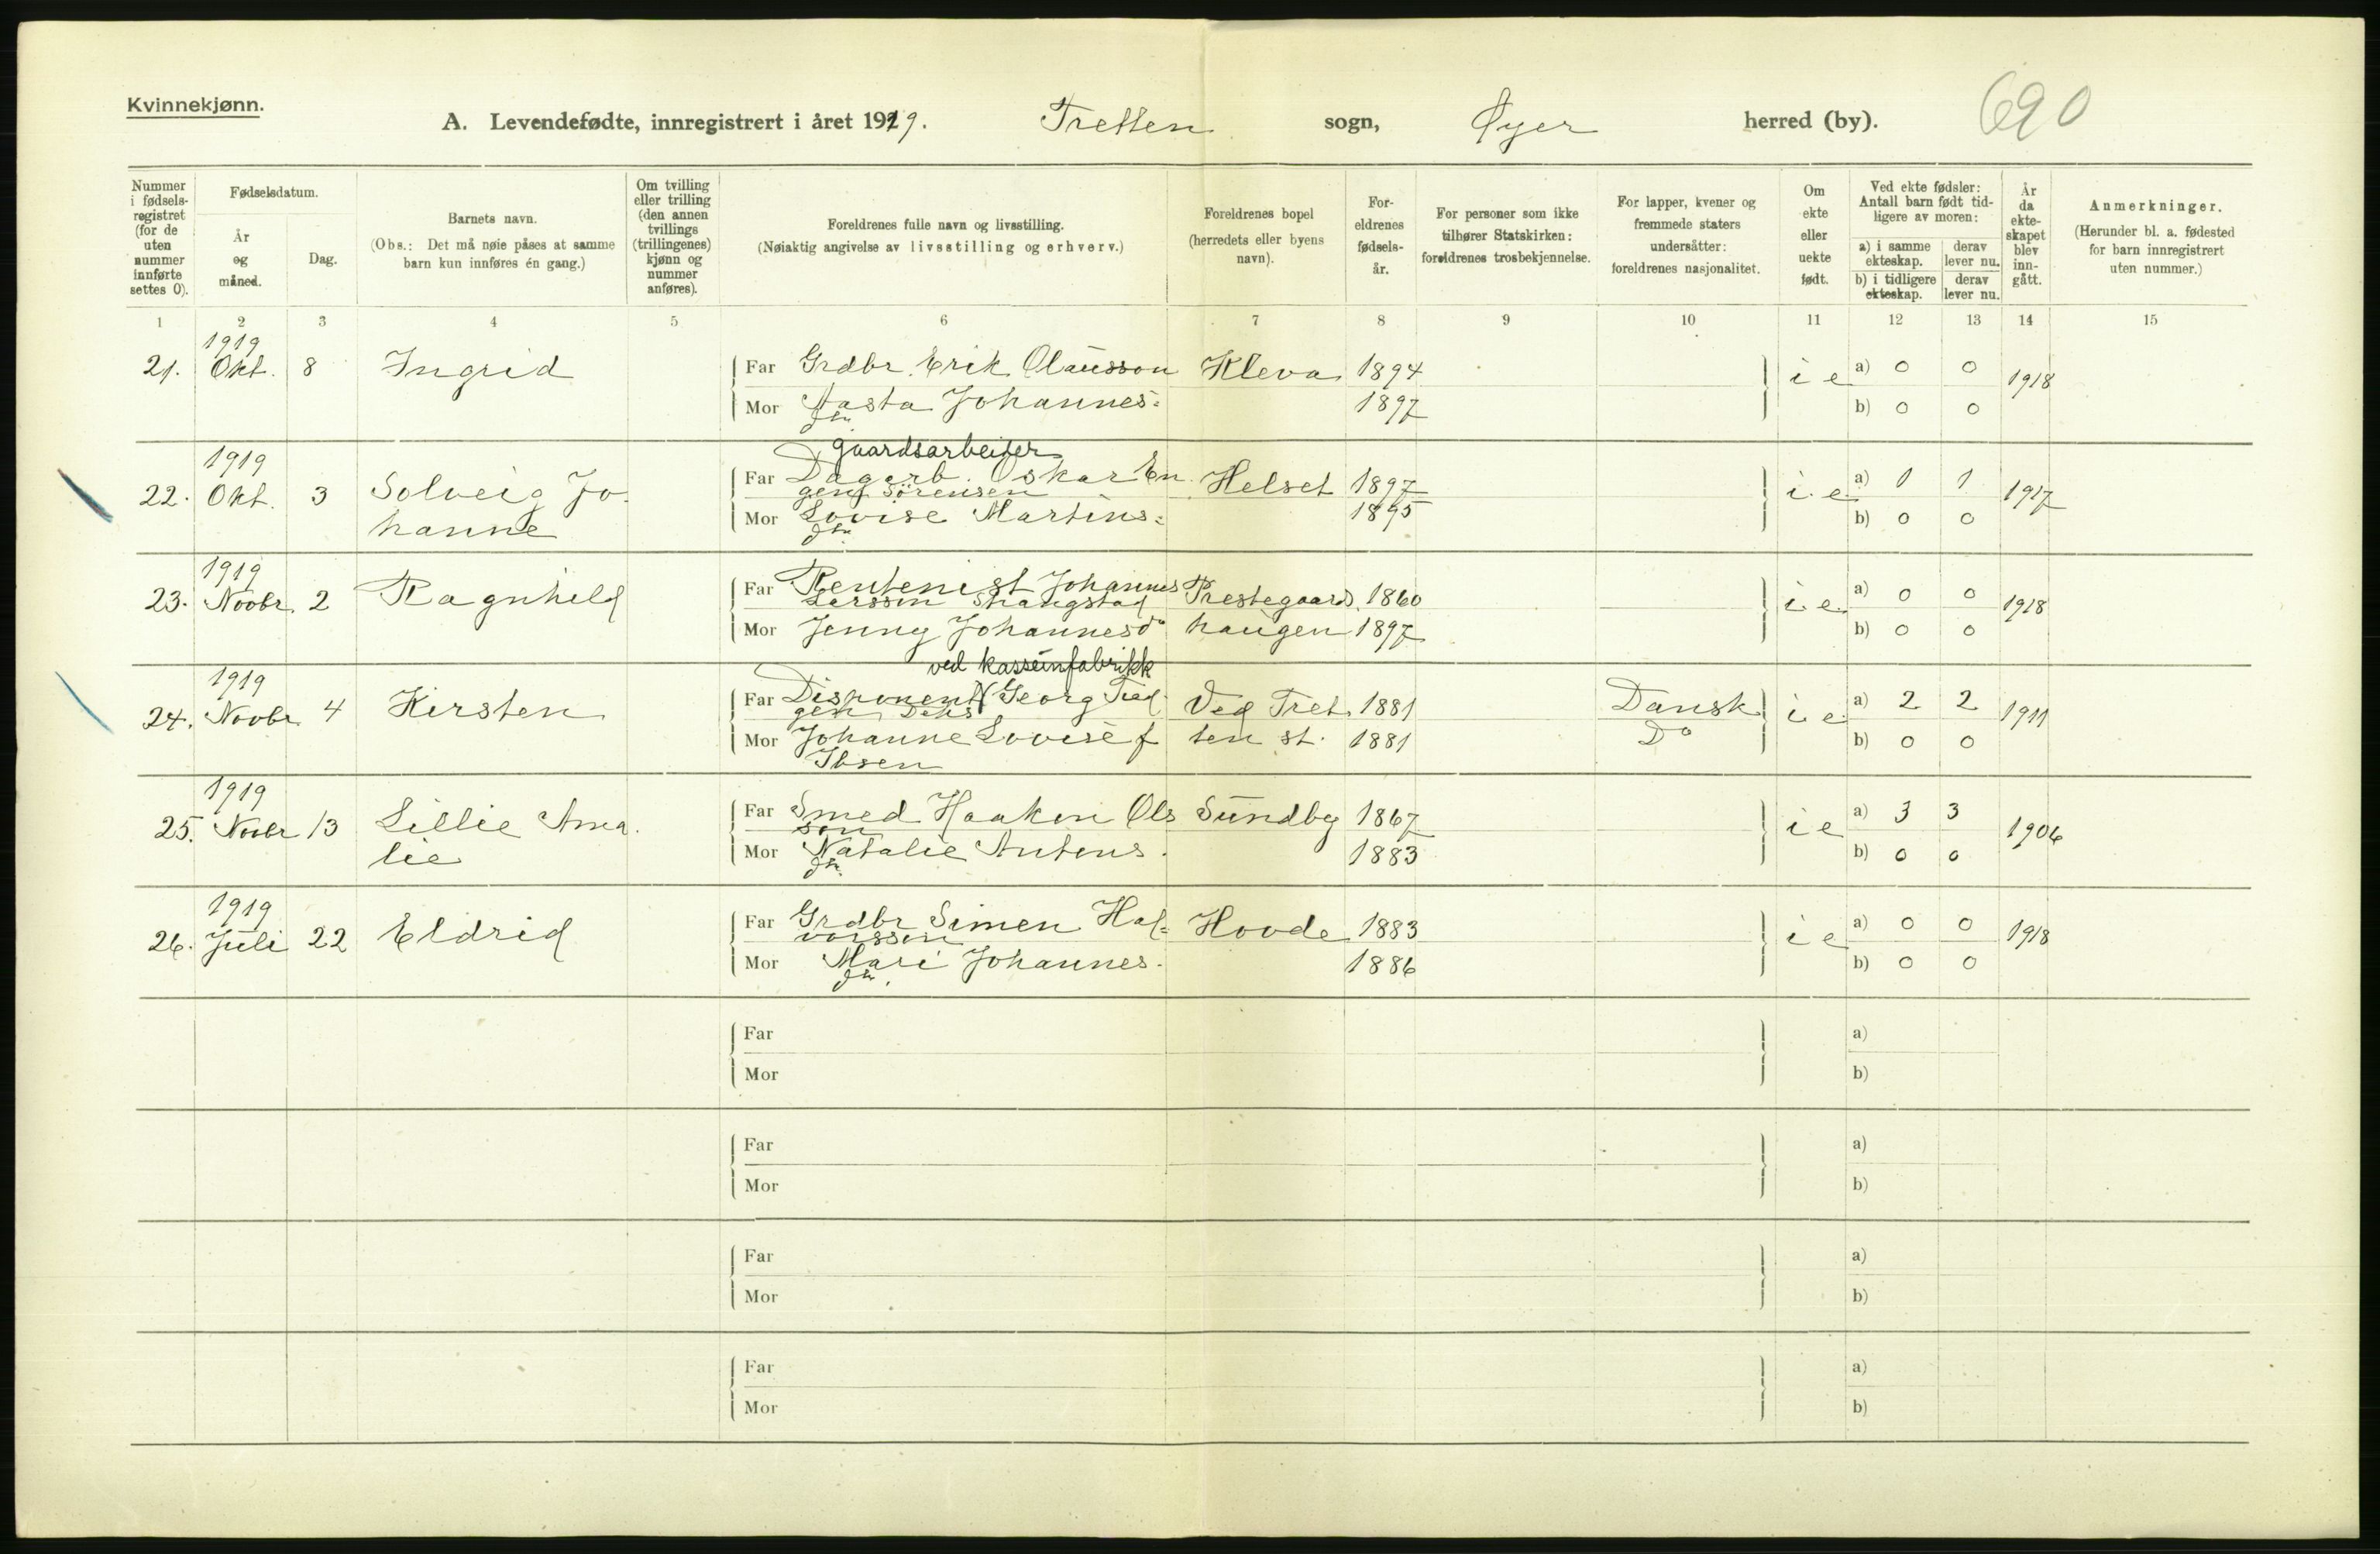 Kvinnekjønn.
A. Levendefødte, innregistrert i året 1919. Tretten sogn, Øyer herred (by). 690
Nummer i fødselsregistret (for de uten nummer innførte settes 0).
Fødselsdatum.
År og måned.
Dag.
Barnets navn.
(Obs.: Det må nøie påses at samme barn kun innføres én gang.)
Om tvilling eller trilling (den annen tvillings (trillingenes) kjønn og nummer anføres).
Foreldrenes fulle navn og livsstilling.
(Nøiaktig angivelse av livsstilling og erhverv.)
Foreldrenes bopel (herredets eller byens navn).
Foreldrenes fødselsår.
For personer som ikke tilhører Statskirken: foreldrenes trosbekjennelse.
For lapper, kvener og fremmede staters undersåtter: foreldrenes nasjonalitet.
Om ekte eller uekte født.
Ved ekte fødsler: Antall barn født tidligere av moren:
a) i samme ekteskap. derav lever nu.
b) i tidligere ekteskap. derav lever nu.
År da ekteskapet blev inngått.
Anmerkninger.
(Herunder bl. a. fødested for barn innregistrert uten nummer.)
1 2 3 4 5 6 7 8 9 10 11 12 13 14 15
1919
21. Okt. 8 Ingrid Far Grdbr. Erik Olausson Kleva 1894 i e a) 0 0 1918
Mor Aasta Johannes= 1897 b) 0 0
dtr.
1919 gaardsarbeider
22. Okt. 3 Solveig Jo- Far Dagarb. Oskar En Helset 1897 i e a) 1 1 1917
gen Sørensen
hanne Mor Lovise Martins= 1895 b) 0 0
dtr.
1919
23. Novbr. 2 Ragnhild Far Rentenist Johannes Prestegaards 1860 i e a) 0 0 1918
Larssen Skaugstad
Mor Jenny Johannesd haugen 1897 b) 0 0
1919 ved kasseinfabrikk
24. Novbr 4 Kirsten Far Disponent Georg Ved Tret 1881 Dansk i e a) 2 2 1911
Mor Johanne Lovise f ten st. 1881 Do b) 0 0
Ibsen
1919
25. Novbr 13 Lillie Ama- Far Smed Haaken Ols Sundby 1867 i e a) 3 3 1906
son
lie Mor Natalie Antons- 1883 b) 0 0
dtr.
1919
26. Juli 22 Eldrid Far Grdbr Simen Hal= Hovde 1883 i e a) 0 0 1918
vorssen
Mor Mari Johannes- 1886 b) 0 0
dtr.
Far a)
Mor b)
Far a)
Mor b)
Far a)
Mor b)
Far a)
Mor b)